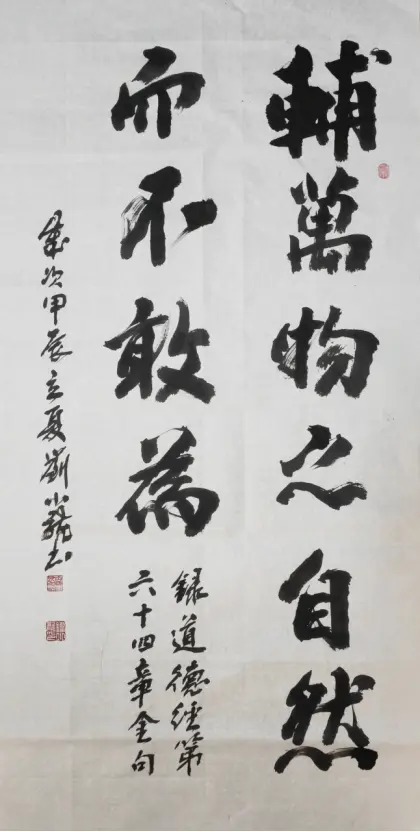 輔萬物之自然
而不敢為
錄道德經第
六十四章金句
歲次甲辰立夏劉小龍書